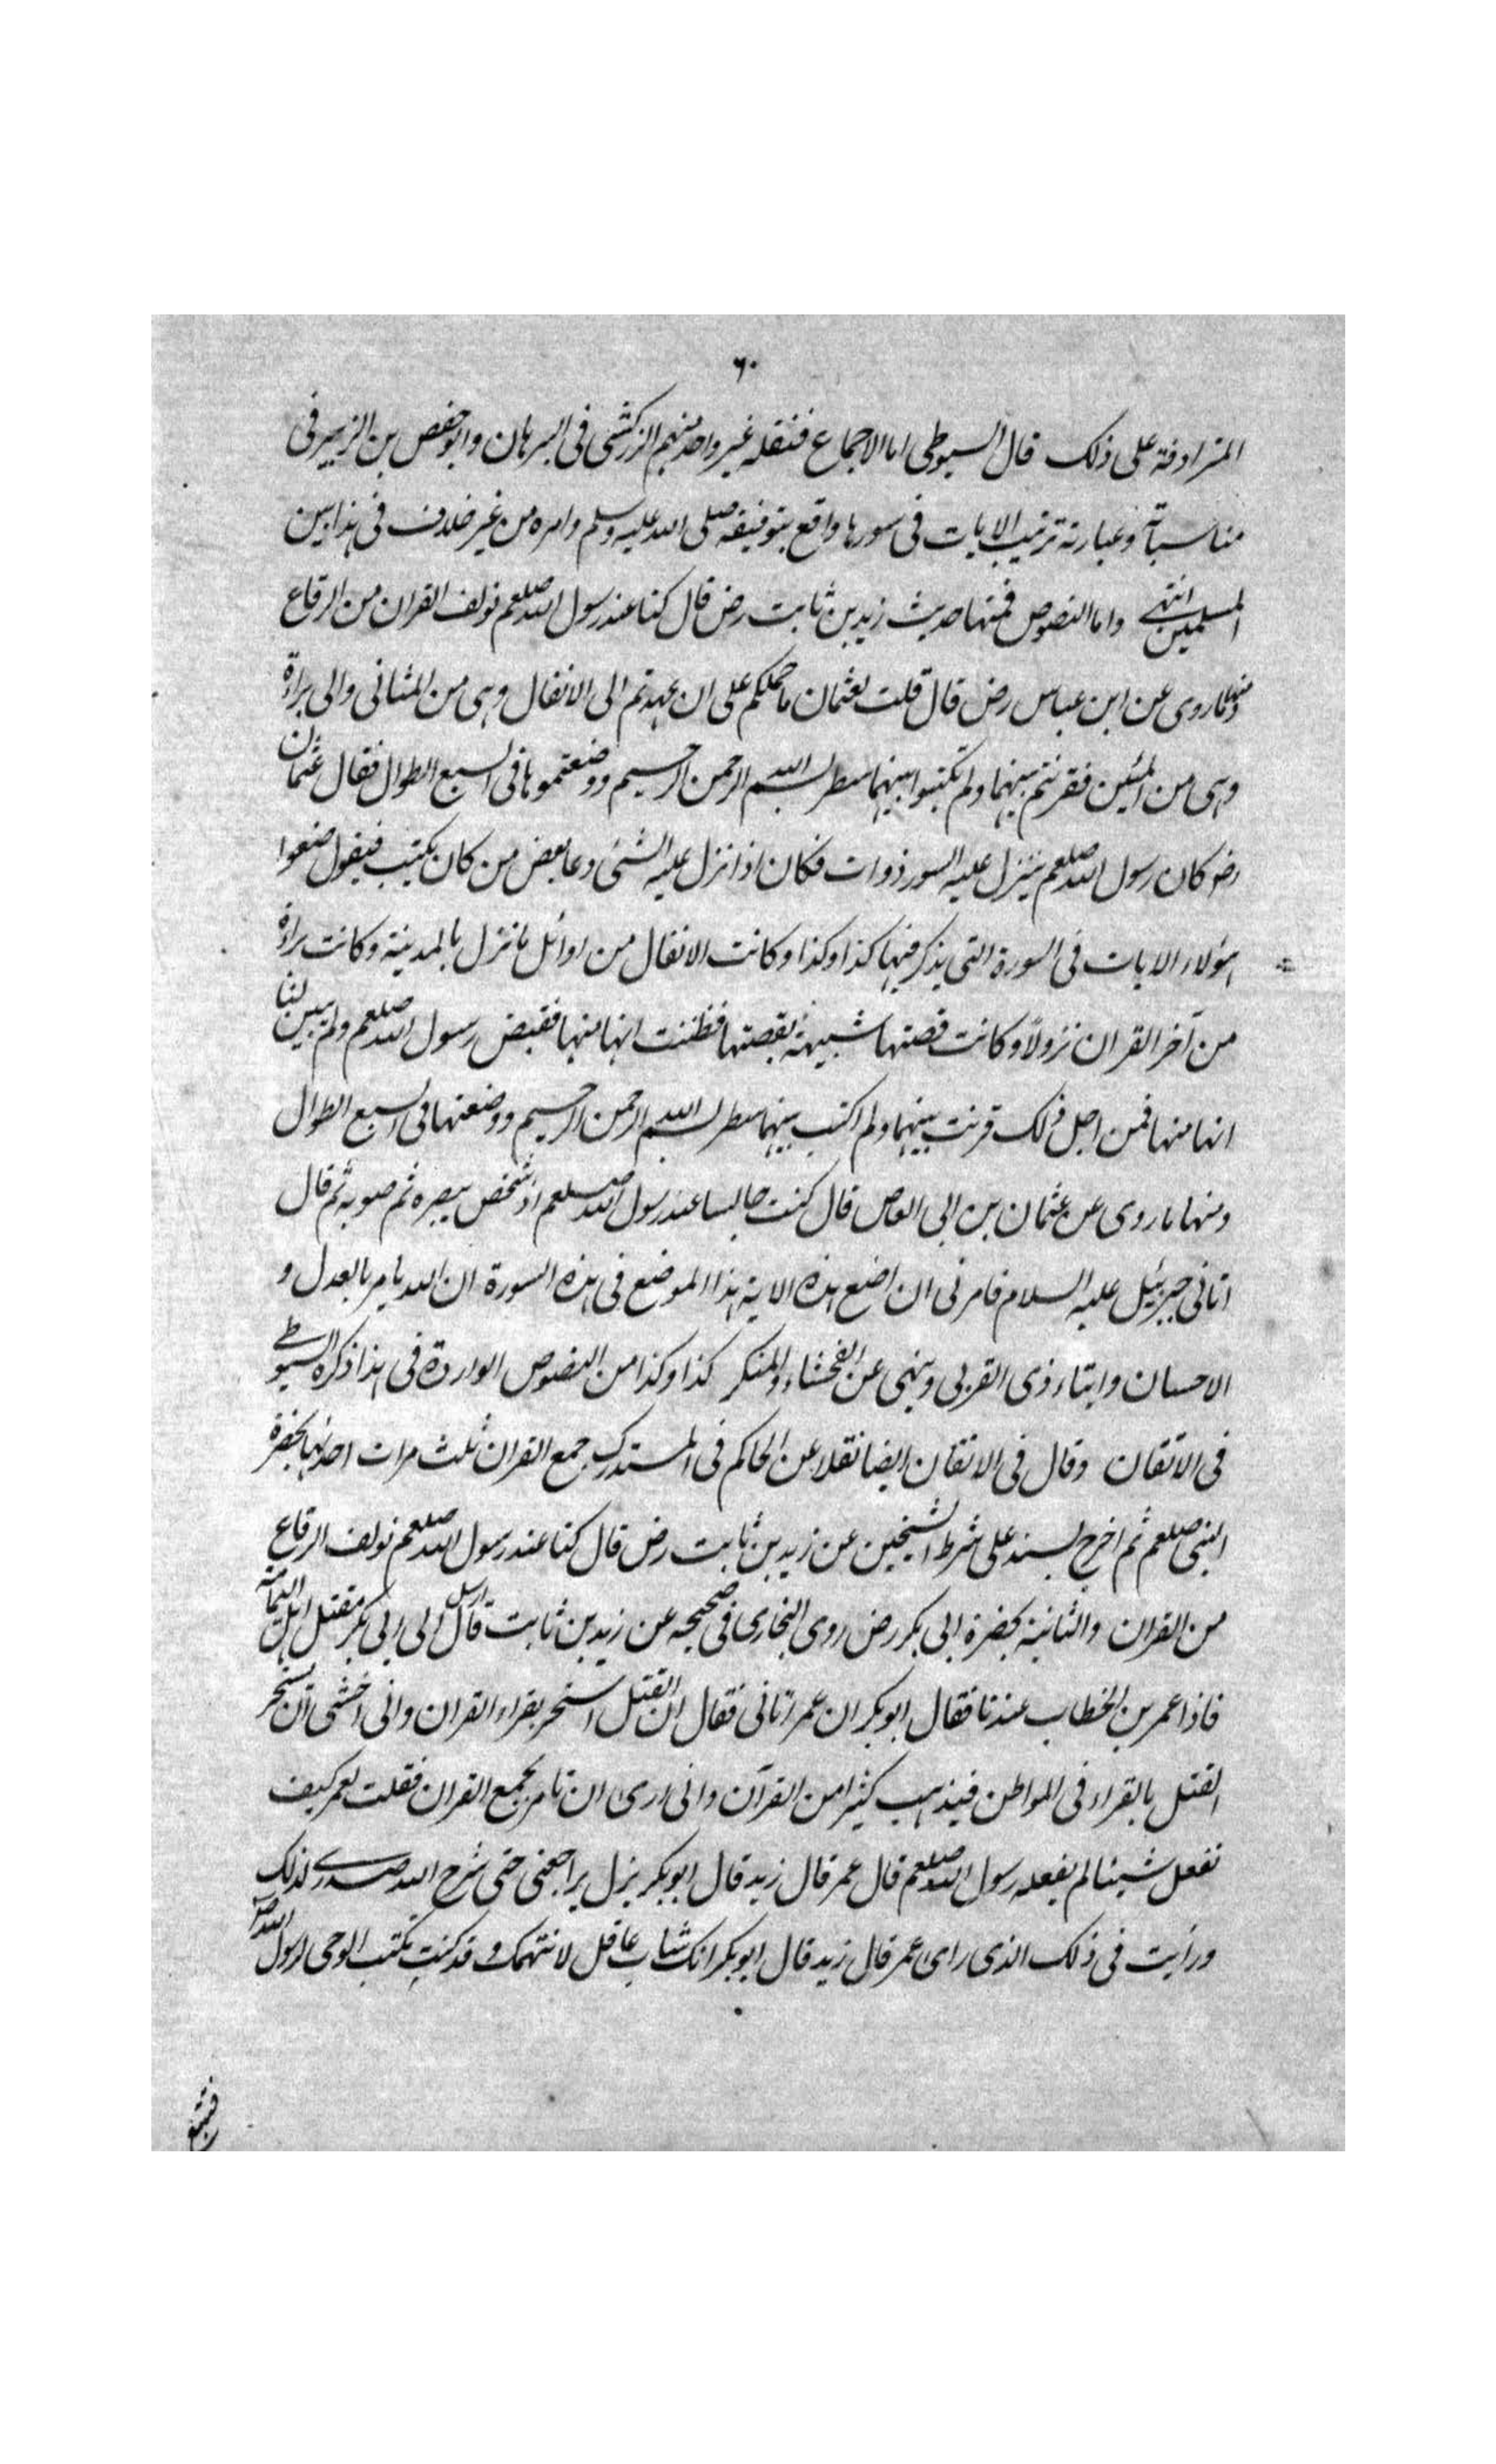 ٦٠
المترادفة على ذلك قال السيوطى اما الاجماع فنقله غير واحد منهم الزركشى فى البرهان وابو حفص بن الزبير فى
مناسباته وعبارته ترتيب الايات فى سورها واقع بتوقيفه صلى الله عليه وسلم وامره من غير خلاف فى هذا بين
المسلمين انتهى واما النصوص فمنها حديث زيد بن ثابت رض قال كنا عند رسول الله صلعم نولف القران من الرقاع
ومنها ما روى عن ابن عباس رض قال قلت لعثمان ما حملكم على ان عهدتم الى الانفال وهى من المثانى والى براءة
وهى من المئين فقرنتم بينهما ولم تكتبوا بينهما سطر بسم الله الرحمن الرحيم ووضعتموها فى السبع الطوال فقال عثمان
رض كان رسول الله صلعم ينزل عليه السور ذوات فكان اذا نزل عليه الشئ دعا بعض من كان يكتب فيقول ضعوا
هؤلاء الايات فى السورة التى يذكر فيها كذا وكذا وكانت الانفال من اوائل ما نزل بالمدينة وكانت براءة
من آخر القران نزولاً وكانت قصتها شبيهة بقصتها فظننت انها منها فقبض رسول الله صلعم ولم يبين لنا
انها منها فمن اجل ذلك قرنت بينهما ولم اكتب بينهما سطر بسم الله الرحمن الرحيم ووضعتها فى السبع الطوال
ومنها ما روى عن عثمان بن ابى العاص قال كنت جالسا عند رسول الله صلعم اذ شخص ببصره ثم صوبه ثم قال
اتانى جبرئيل عليه السلام فامرنى ان اضع هذه الاية هذا الموضع فى هذه السورة ان الله يامر بالعدل و
الاحسان وايتاء ذى القربى وينهى عن الفحشاء والمنكر كذا وكذا من النصوص الواردة فى هذا ذكره السيوطى
فى الاتقان وقال فى الاتقان ايضا نقلا عن الحاكم فى المستدرك جمع القران ثلث مرات احدها بحضرة
النبى صلعم ثم اخرج بسند على شرط الشيخين عن زيد بن ثابت رض قال كنا عند رسول الله صلعم نولف الرقاع
من القران والثانية بحضرة ابى بكر رض روى البخارى فى صحيحه عن زيد بن ثابت قال ارسل الى ابى بكر مقتل اهل اليمامة
فاذا عمر بن الخطاب عندنا فقال ابو بكر ان عمر اتانى فقال ان القتل استحر بقراء القران وانى اخشى ان يستحر
القتل بالقراء فى المواطن فيذهب كثيرا من القرآن وانى ارى ان تامر بجمع القران فقلت لعمر كيف
نفعل شيئا لم يفعله رسول الله صلعم قال عمر قال زيد قال ابو بكر يزل يراجعنى حتى شرح الله صدرى لذلك
ورأيت فى ذلك الذى راى عمر قال زيد قال ابو بكر انك شاب عاقل لا نتهمك وقد كنت تكتب الوحى لرسول الله ص
فتتبع